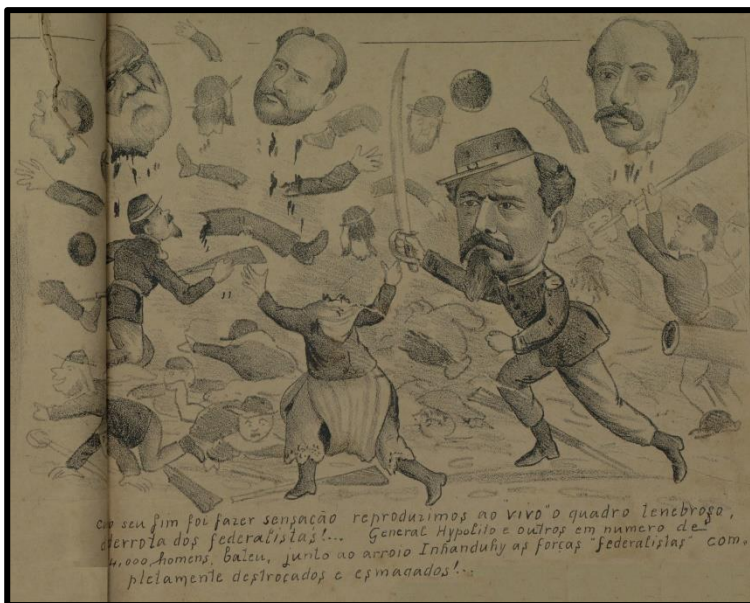 seu fim foi fazer sensação reproduzimos ao "vivo" o quadro tenebroso,
derrota dos federalistas!... General Hypolito e outros em numero de
4,000 homens, bateu, junto ao arroio Inhanduhy as forças "federalistas" com,
pletamente destroçados e esmagados!..